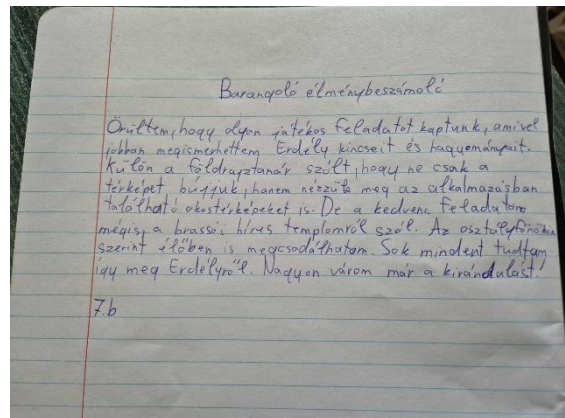 Barangoló élménybeszámoló
Örültem, hogy olyan játékos feladatot kaptunk, amivel
jobban megismerhettem Erdély kincseit és hagyományait.
Külön a földrajztanár szólt, hogy ne csak a
térképet bújjuk, hanem nézzük meg az alkalmazásban
található okostérképeket is. De a kedvenc feladatom
mégis, a brassói híres templomról szól. Az osztályfőnököm
szerint élőben is megcsodálhatom. Sok mindent tudtam
így meg Erdélyről. Nagyon várom már a kirándulást!
7.b